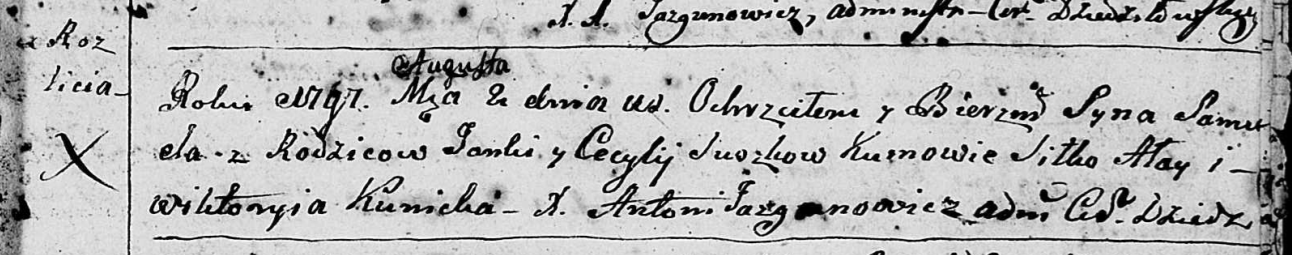 X. A. Jazgunowicz, administr. Cer. Dziedziłowskiey
z Roz
licia
Augusta
Roku 1797. Mca 2 dnia us. Ochrzciłem y Bierzm. Syna Samu
ela z Rodzicow Janki y Cecylij Suszkow Kumowie Sitko Ałay i
wiktoryia Kunicka X. Antoni Jazgunowicz adm. Cer. Dziedz
X